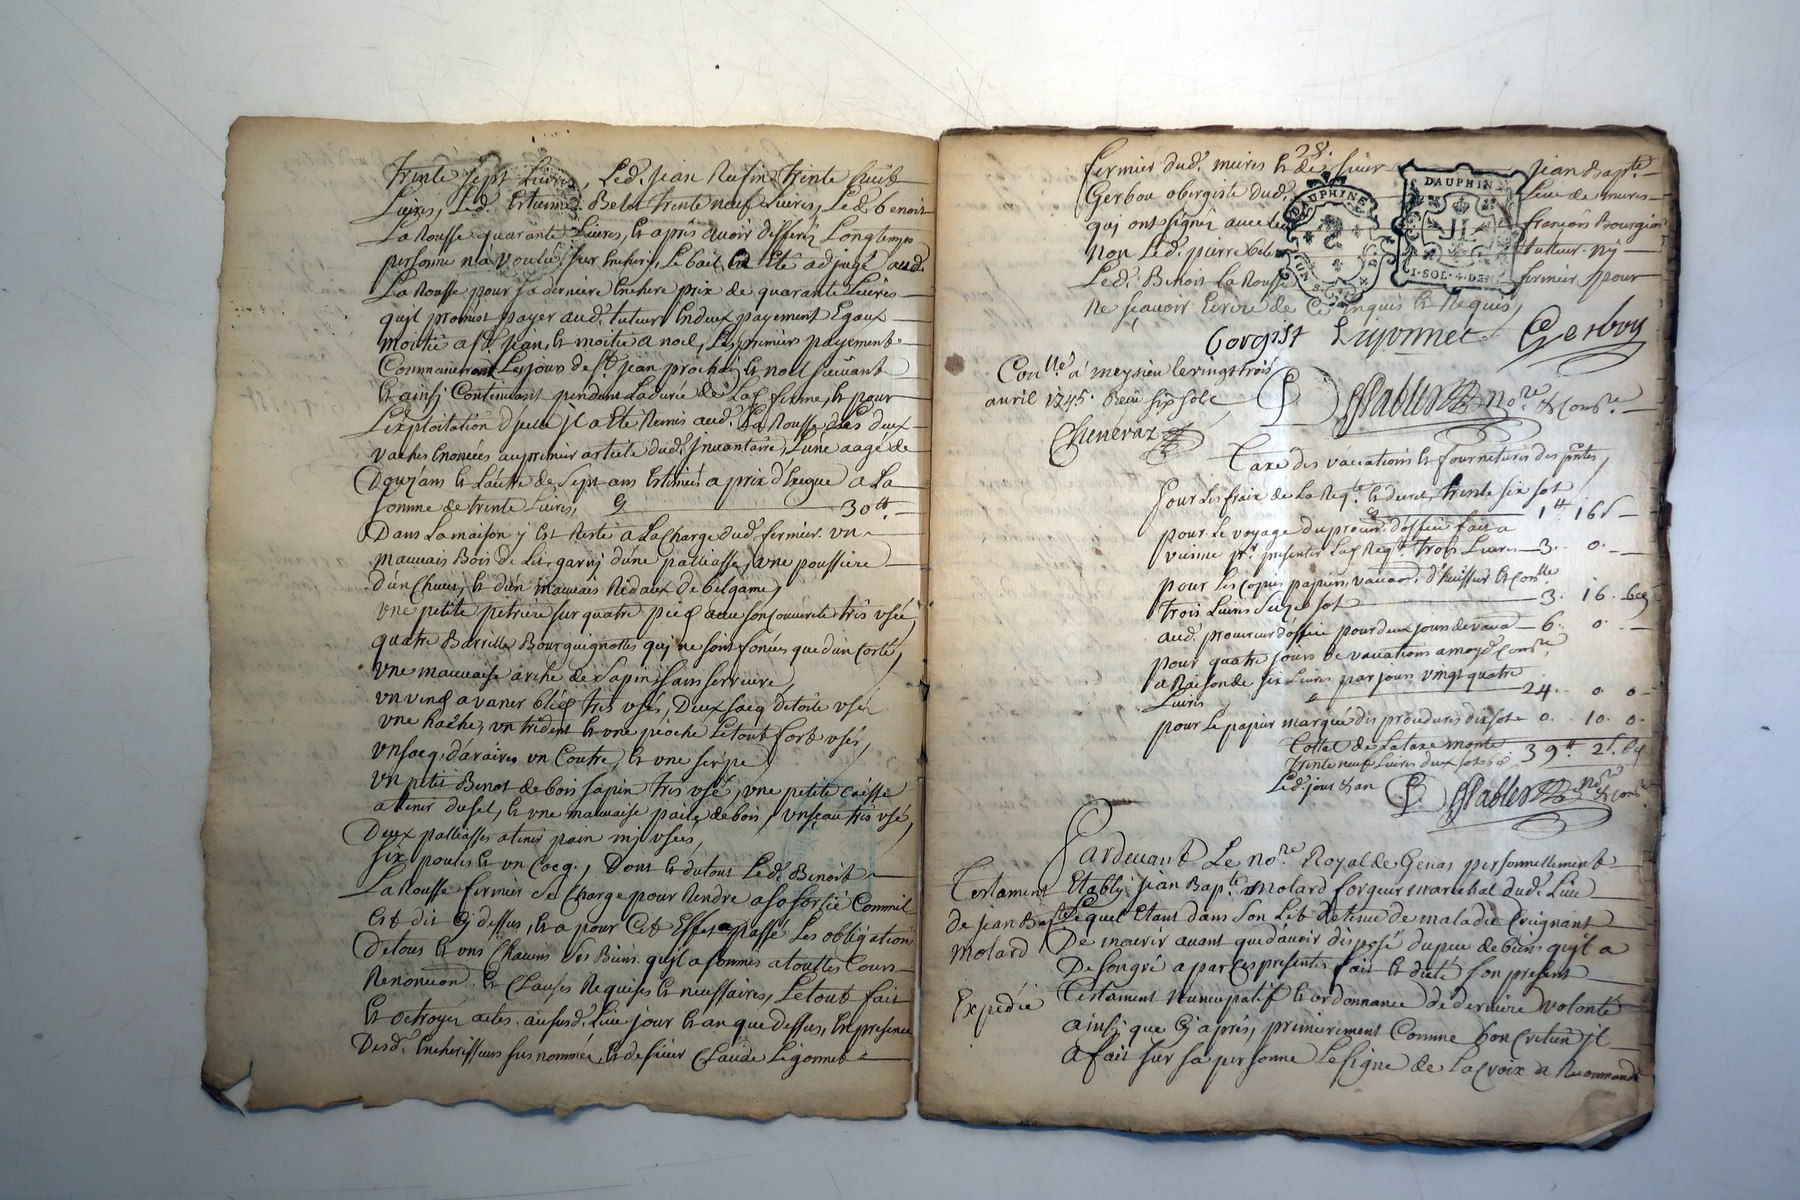 Trente sept Livres, Led. Jean Rufin trente huit
Livres, Led. Estienne Belet trente neuf Livres, Led. benoit
La Rousse quarante Livres, et après avoir differé Longtemps
personne n'a voulu sur encherir, Le bail a Eté adjugé aud.
La Rousse pour sa derniere Enchere prix de quarante Livres
quil promist payer aud. tuteur En deux payement Egaux
moitié a st Jean, et moitié a noel, Les premiers payements
Commanceront Les jours de st jean prochain et noel suivant
Et ainsi Continuant pendant La durée de Lad. ferme, et pour
L'exploitation d'jcelle jl a eté Remis aud. La Rousse Les deux
vaches Enoncées au premier article dud. Jnvantaire, L'une aagé de
Douz ans et L'autre de sept ans Estimés a prix d'Exegue a La
somme de trente Livres, Cy 30 tt.
Dans La maison y Est Resté a La Charge dud. fermier un
mauvais Bois de Lit garnj d'une palliasse, une poussiere
d'un Chevet, et d'un mauvais Ridaux de belgame,
une petite petriere sur quatre pied avec son couvercle très usée,
quatre Barrille Bourguignottes quj ne sont foncées que d'un Costé,
une mauvaise arche de sapin sans serrure,
un vind a vaner bled très usés, Deux sacq de toile usés
une hache, un trident et une pioche Le tout fort usés,
un socq d'araires un Coutre, et une serpe,
un petit Benot de bois sapin très usé, une petite caisse
a tenir du sel, et une mauvaise paile de bois, un seau très usé,
Deux palliasses a tenir pain mj usées,
six poules et un Cocq, Dont et du tout Led. Benoit
La Rousse fermier se Charge pour Rendre a sa sortie Comme il
Est dit Cy dessus, et a pour Cet Effet passé Les obligations
De tous et uns Chacuns ses Biens quil a soumis a touttes Cours
Renoncon. et Clauses Requises et necessaires, Le tout fait
Et octroyer actes aususd. Lieu jour et an que dessus, En presence
Desd. Encherisseurs sus nommés, et de sieur Claude Ligonnet
28.
fermier dud. mures et de sieur Jean Bapte
Gerbou obergiste dud. Lieu de mures
qui ont signé avec Led. françois Bourgeois
non Led. pierre tutteur nj
Led. Benoit La Rousse fermier pour
ne sçavoir Ecrire de Ce Enquis et Requis,
DAUPHINE
DAUPHIN
1·SOL·4·DEN
Gerboy
Conllé a meysieu le vingt trois
avril 1745. Receu six sols
Cheneraz
nore
Taxe des vacations et fournitures des pntes,
Pour Les fraix de La Reqte et decret, trente six sols
Cy 1 tt 16 s
pour Le voyage du procur. d'office fait a
vienne pr presenter Lad. Reqte trois Livres 3. 0.
pour Les copies papiers, vacaon. d'huissier et Conlle
trois Livres seize sol 3. 16.
aud. procureur d'office pour deux jours de vaca 6. 0.
pour quatre jours de vacations a moyd.
a Raison de six Livres par jours vingt quatre
Livres 24. 0. 0
pour Le papier marqué des procedures dix sols 0. 10. 0.
Total de La taxe monte 39 tt 2 s.
trente neuf Livres deux sols
Led. jour et an
nore
Pardevant Le nore Royal de Genas personnellement
Testament Etably Jean Bapte molard forgeur marechal dud. Lieu
de Jean Bapte Lequel Etant dans son Lit detenu de maladie Craignant
molard De mourir avant que d'avoir disposé du peu de biens quil a
De son gré a par Ces presentes fait et dicté son present
Expediée Testament nuncupatif et ordonnance de derniere volonté
ainsj que Cy après, premierement Comme bon Cretien jl
a fait sur sa personne Le signe de La Croix Recommandé